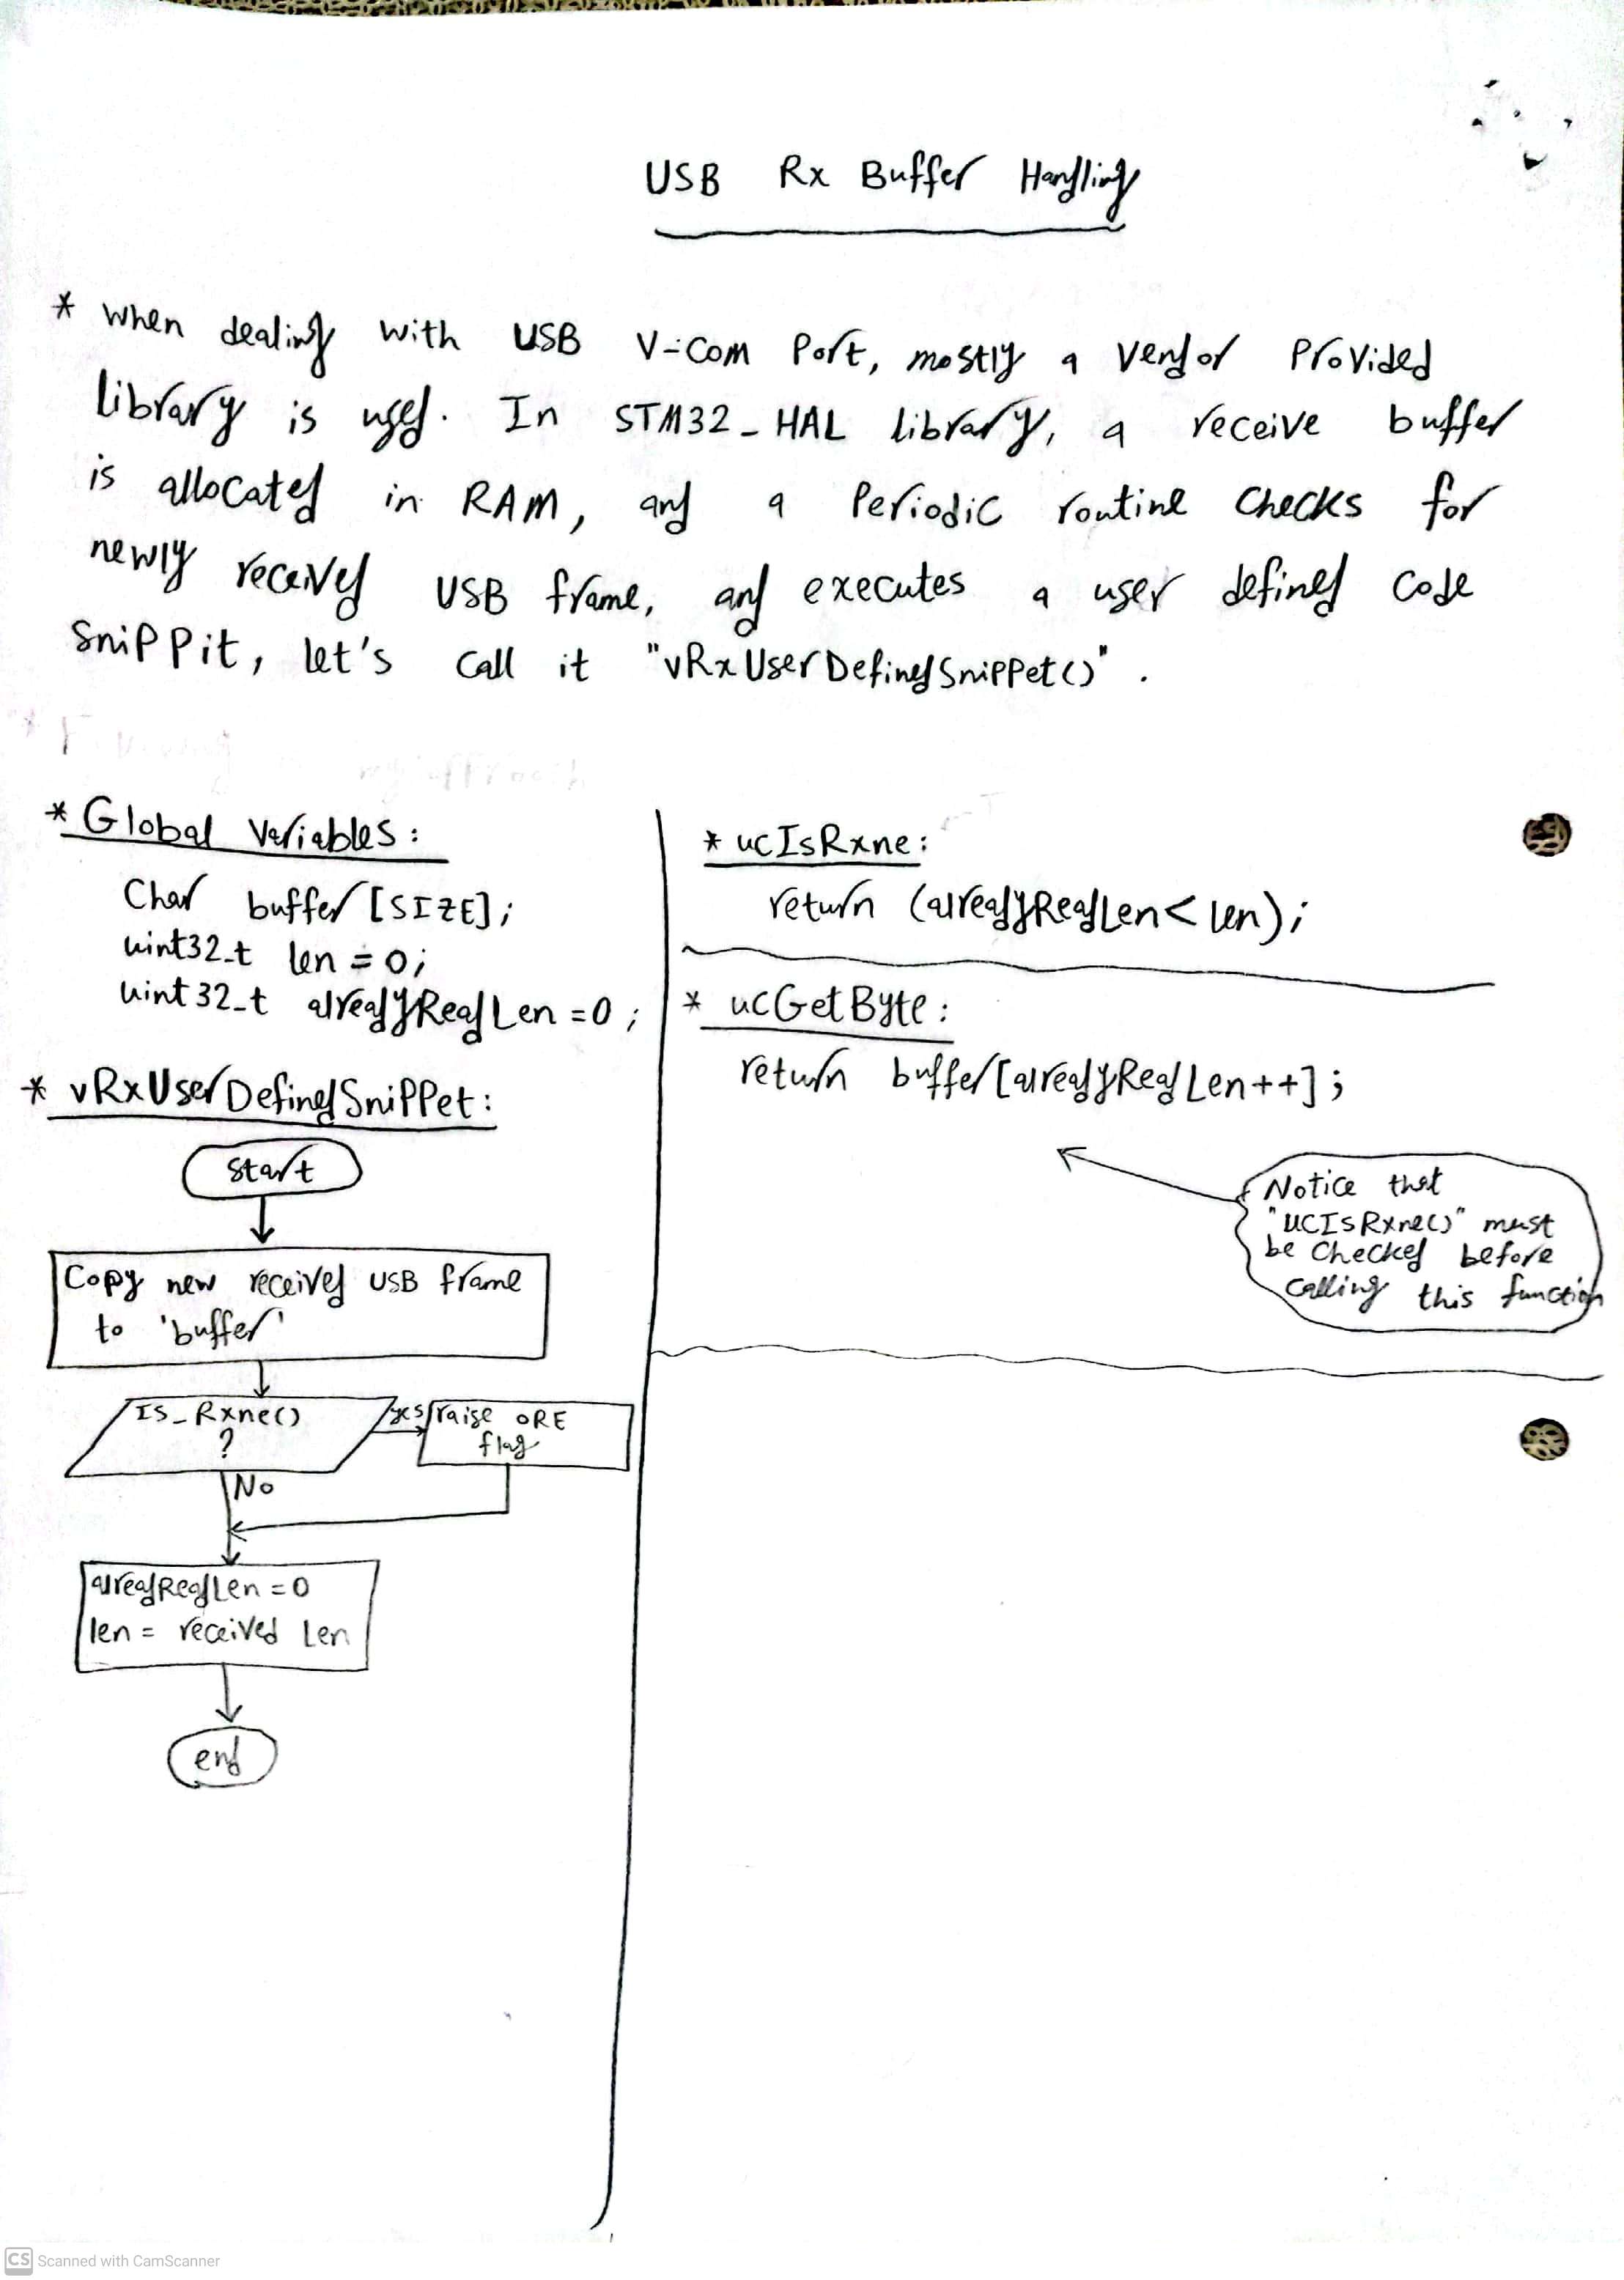 USB Rx Buffer Handling
* When dealing with USB V-Com Port, mostly a vendor provided
library is used. In STM32_HAL library, a receive buffer
is allocated in RAM, and a Periodic routine checks for
newly received USB frame, and executes a user defined code
snippit, let's call it "vRxUserDefinedSnippet()".
* Global Variables:
Char buffer[SIZE];
uint32_t len = 0;
uint32_t alreadyReadLen = 0;
* vRxUserDefinedSnippet:
Start
Copy new received USB frame
to 'buffer'
Is_Rxne()
?
yes
raise ORE
flag
No
alreadReadLen = 0
len = received Len
end
* ucIsRxne:
return (alreadyReadLen < len);
* ucGetByte:
return buffer[alreadyReadLen++];
Notice that
"UCIsRxne()" must
be Checked before
calling this function
CS Scanned with CamScanner